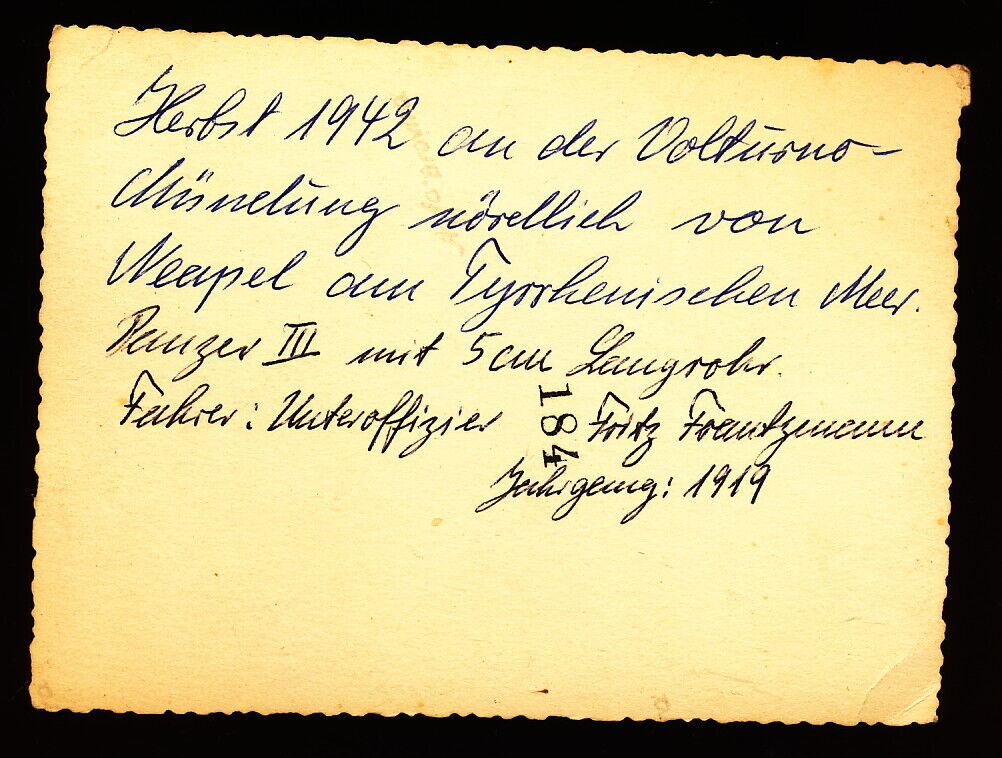 Herbst 1942 an der Volturno-
Mündung nördlich von
Neapel am Tyrrhenischen Meer.
Panzer III mit 5cm Langrohr.
Fahrer: Unteroffizier Fritz Frantzmann
Jahrgang: 1919
184